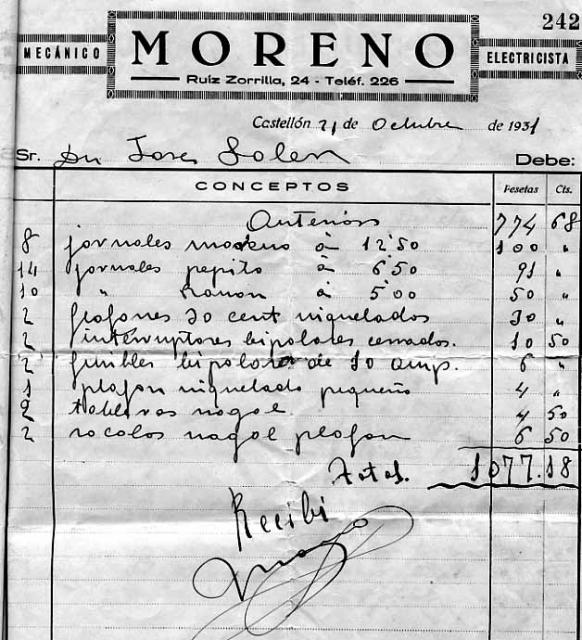 242
MECÁNICO
MORENO
ELECTRICISTA
Ruiz Zorrilla, 24 - Teléf. 226
Castellón 21 de Octubre de 1931
Sr. Dn José Debe:
CONCEPTOS Pesetas Cts.
Anterior 774 68
8 jornales moreno à 12'50 100 "
14 jornales pepito à 6'50 91 "
10 " Ramon à 5'00 50 "
2 plafones 30 cent niquelados 30 "
2 interruptores bipolares cerrados. 10 50
2 fusibles bipolares de 10 amp. 6 "
1 plafon niquelado pequeño 4 "
2 nogal 4 50
2 socolos nogal plafon 6 50
Total. 1077.18
Recibi